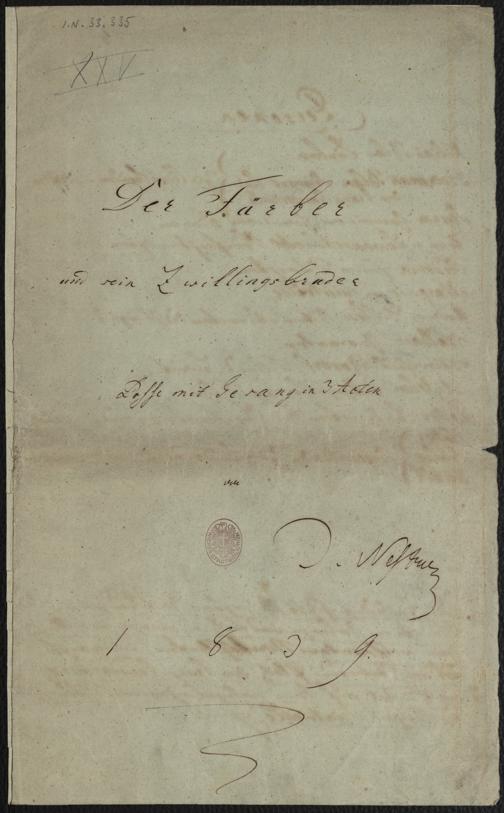 I.N. 33.335
XXV
Der Färber
und sein Zwillingsbruder
Posse mit Gesang in 3 Acten
von
J. Nestroy
1839.